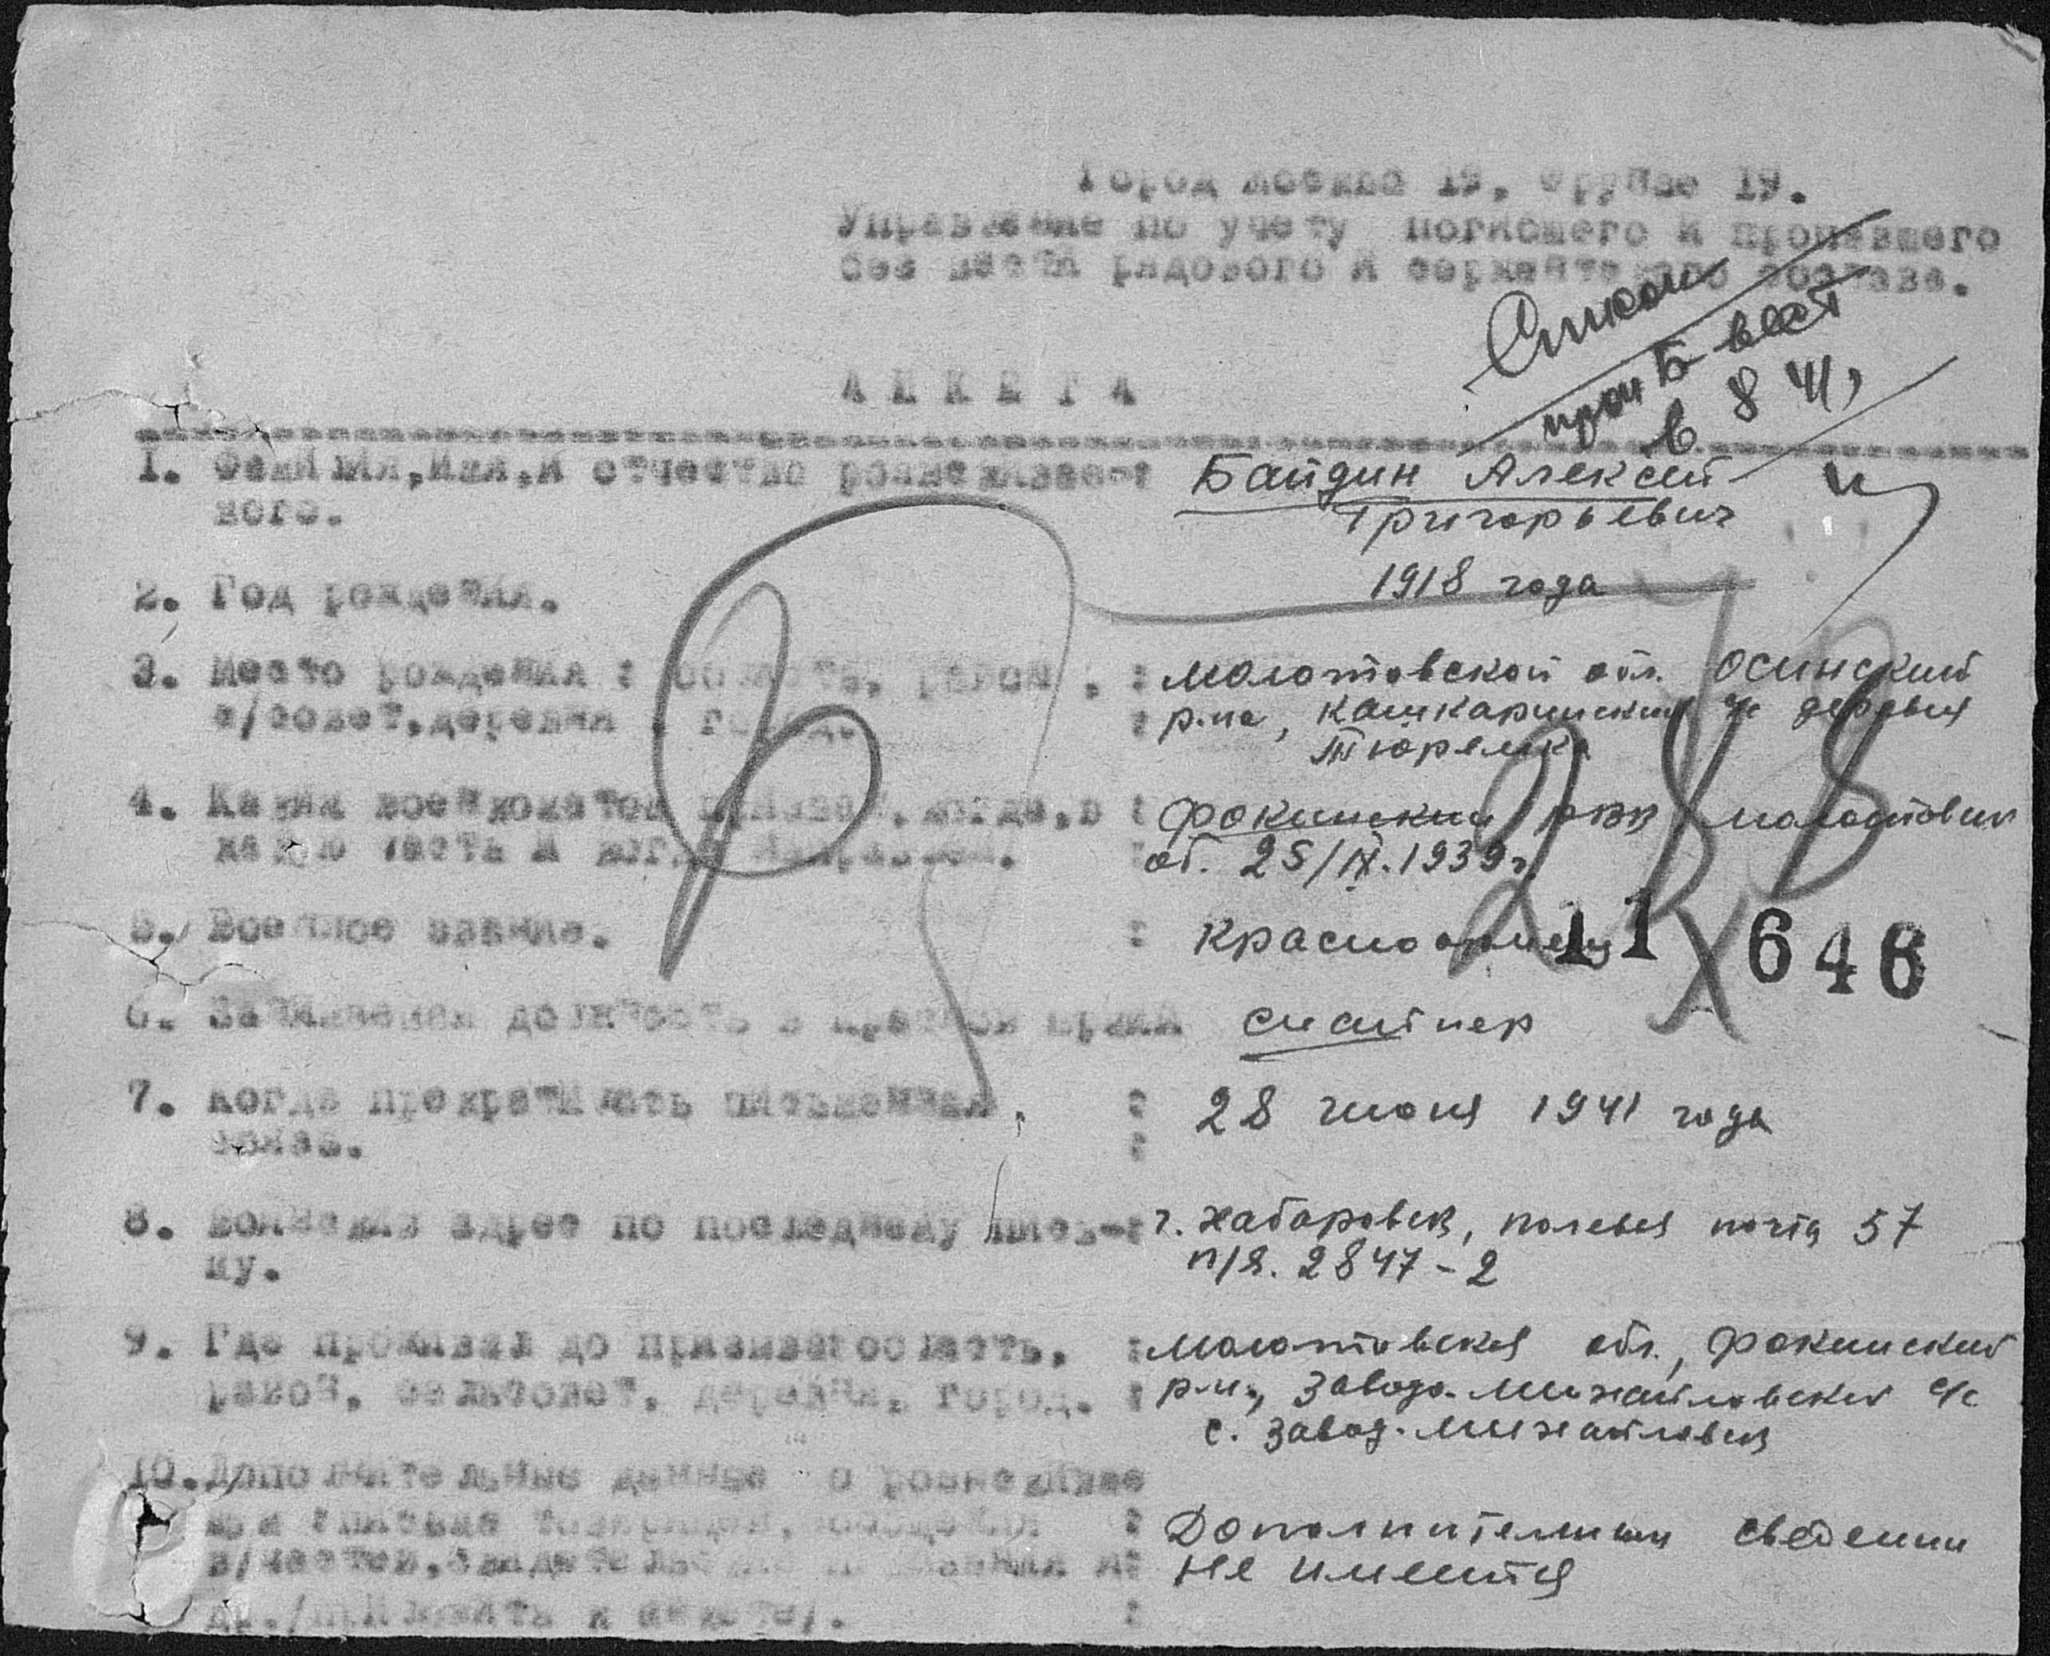 Город Москва 19, Фрунзе 19.
Управление по учету погибшего и пропавшего
без вести рядового и сержантского состава.
проп б вест
в 8 41,
А Н К Е Т А
1. Фамилия, имя, и отчество розыскивае-: Байдин Алексей
мого. Григорьевич
2. Год рождения. 1918 года
3. Место рождения : область, район , : Молотовской обл. Осинский
с/совет, деревня , город. : р-на, Кашкаринский с/с деревня
4. Каким военкоматом призван, когда, в : Фокинский РВК Молотовск
какую часть и когда направлен. об. 25/IX.1939 г.
288
5. Военное звание. : Красноармеец
11 646
6. Занимаемая должность в Красной армии снайпер
7. Когда прекратилась письменная : 28 июня 1941 года
связь. :
8. Воинский адрес по последнему пись-: г. Хабаровск, полевая почта 57
му. п/я. 2847-2
9. Где проживал до призыва: область, : Молотовская обл., Фокинский
район, сельсовет, деревня, город. : р-н, Завода-Михайловский с/с
с. Завод-Михайловск
10. Дополнительные данные о розыскивае
: Дополнительных сведении
в/частей, : не имеется
др./приложить к анкете/. :